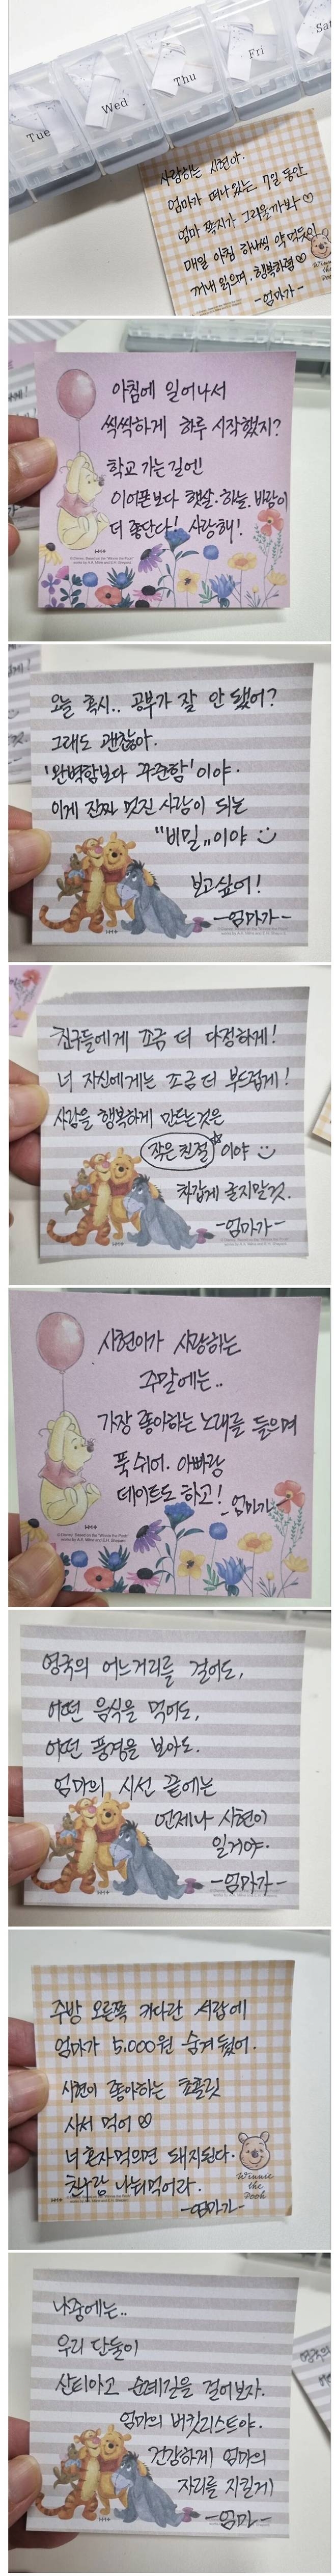 Tue
Wed
Thu
Fri
Sat
사랑하는 시현아.
엄마가 떠나있는 7일 동안
엄마 쪽지가 그리울까봐 ♡
매일 아침 하나씩 약 먹듯이
꺼내 읽으며. 행복하렴 ♡
-엄마가-
Winnie
the
아침에 일어나서
씩씩하게 하루 시작했지?
학교 가는 길엔
이어폰보다 햇살·하늘. 바람이
더 좋단다! 사랑해!
오늘 혹시.. 공부가 잘 안 됐어?
그래도 괜찮아.
'완벽함보다 꾸준함'이야.
이게 진짜 멋진 사람이 되는
"비밀"이야
보고싶어!
-엄마가-
친구들에게 조금 더 다정하게!
너 자신에게는 조금 더 부드럽게!
사람을 행복하게 만드는 것은
작은 친절 이야
차갑게 굴지말것.
-엄마가-
시현이가 사랑하는
주말에는..
가장 좋아하는 노래를 들으며
푹 쉬어. 아빠랑
데이트도 하고! -엄마가-
영국의 어느거리를 걸어도,
어떤 음식을 먹어도,
어떤 풍경을 보아도.
엄마의 시선 끝에는
언제나 시현이
일거야.
-엄마가-
주방 오른쪽 커다란 서랍에
엄마가 5,000원 숨겨 뒀어.
시현이 좋아하는 초콜릿
사서 먹어 ♡
너 혼자 먹으면 돼지된다.
친구랑 나눠먹어라.
-엄마가-
Winnie
the
Pooh
나중에는..
우리 단둘이
산티아고 순례길을 걸어보자.
엄마의 버킷리스트야.
건강하게 엄마의
자리를 지킬게
-엄마-